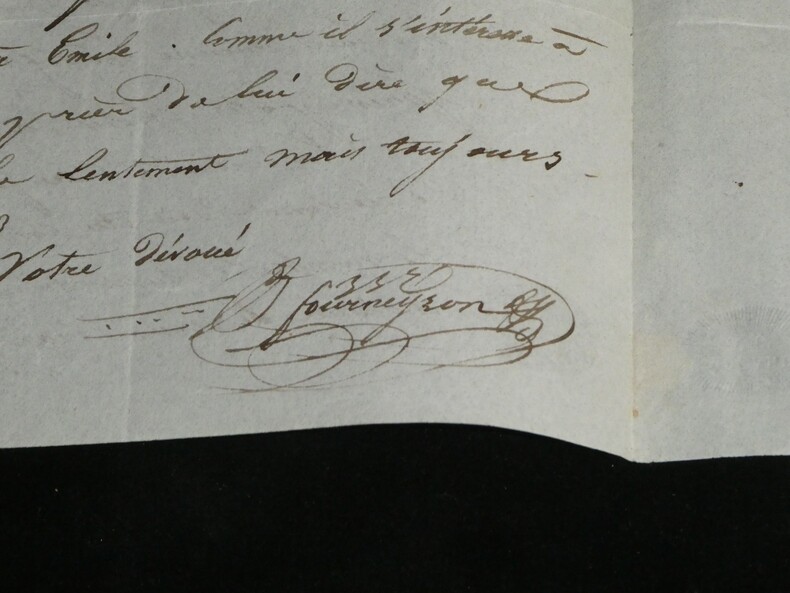 Emile. Comme il s'intéresse à
prier de lui dire que
lentement mais toujours -
Votre dévoué
fourneyron